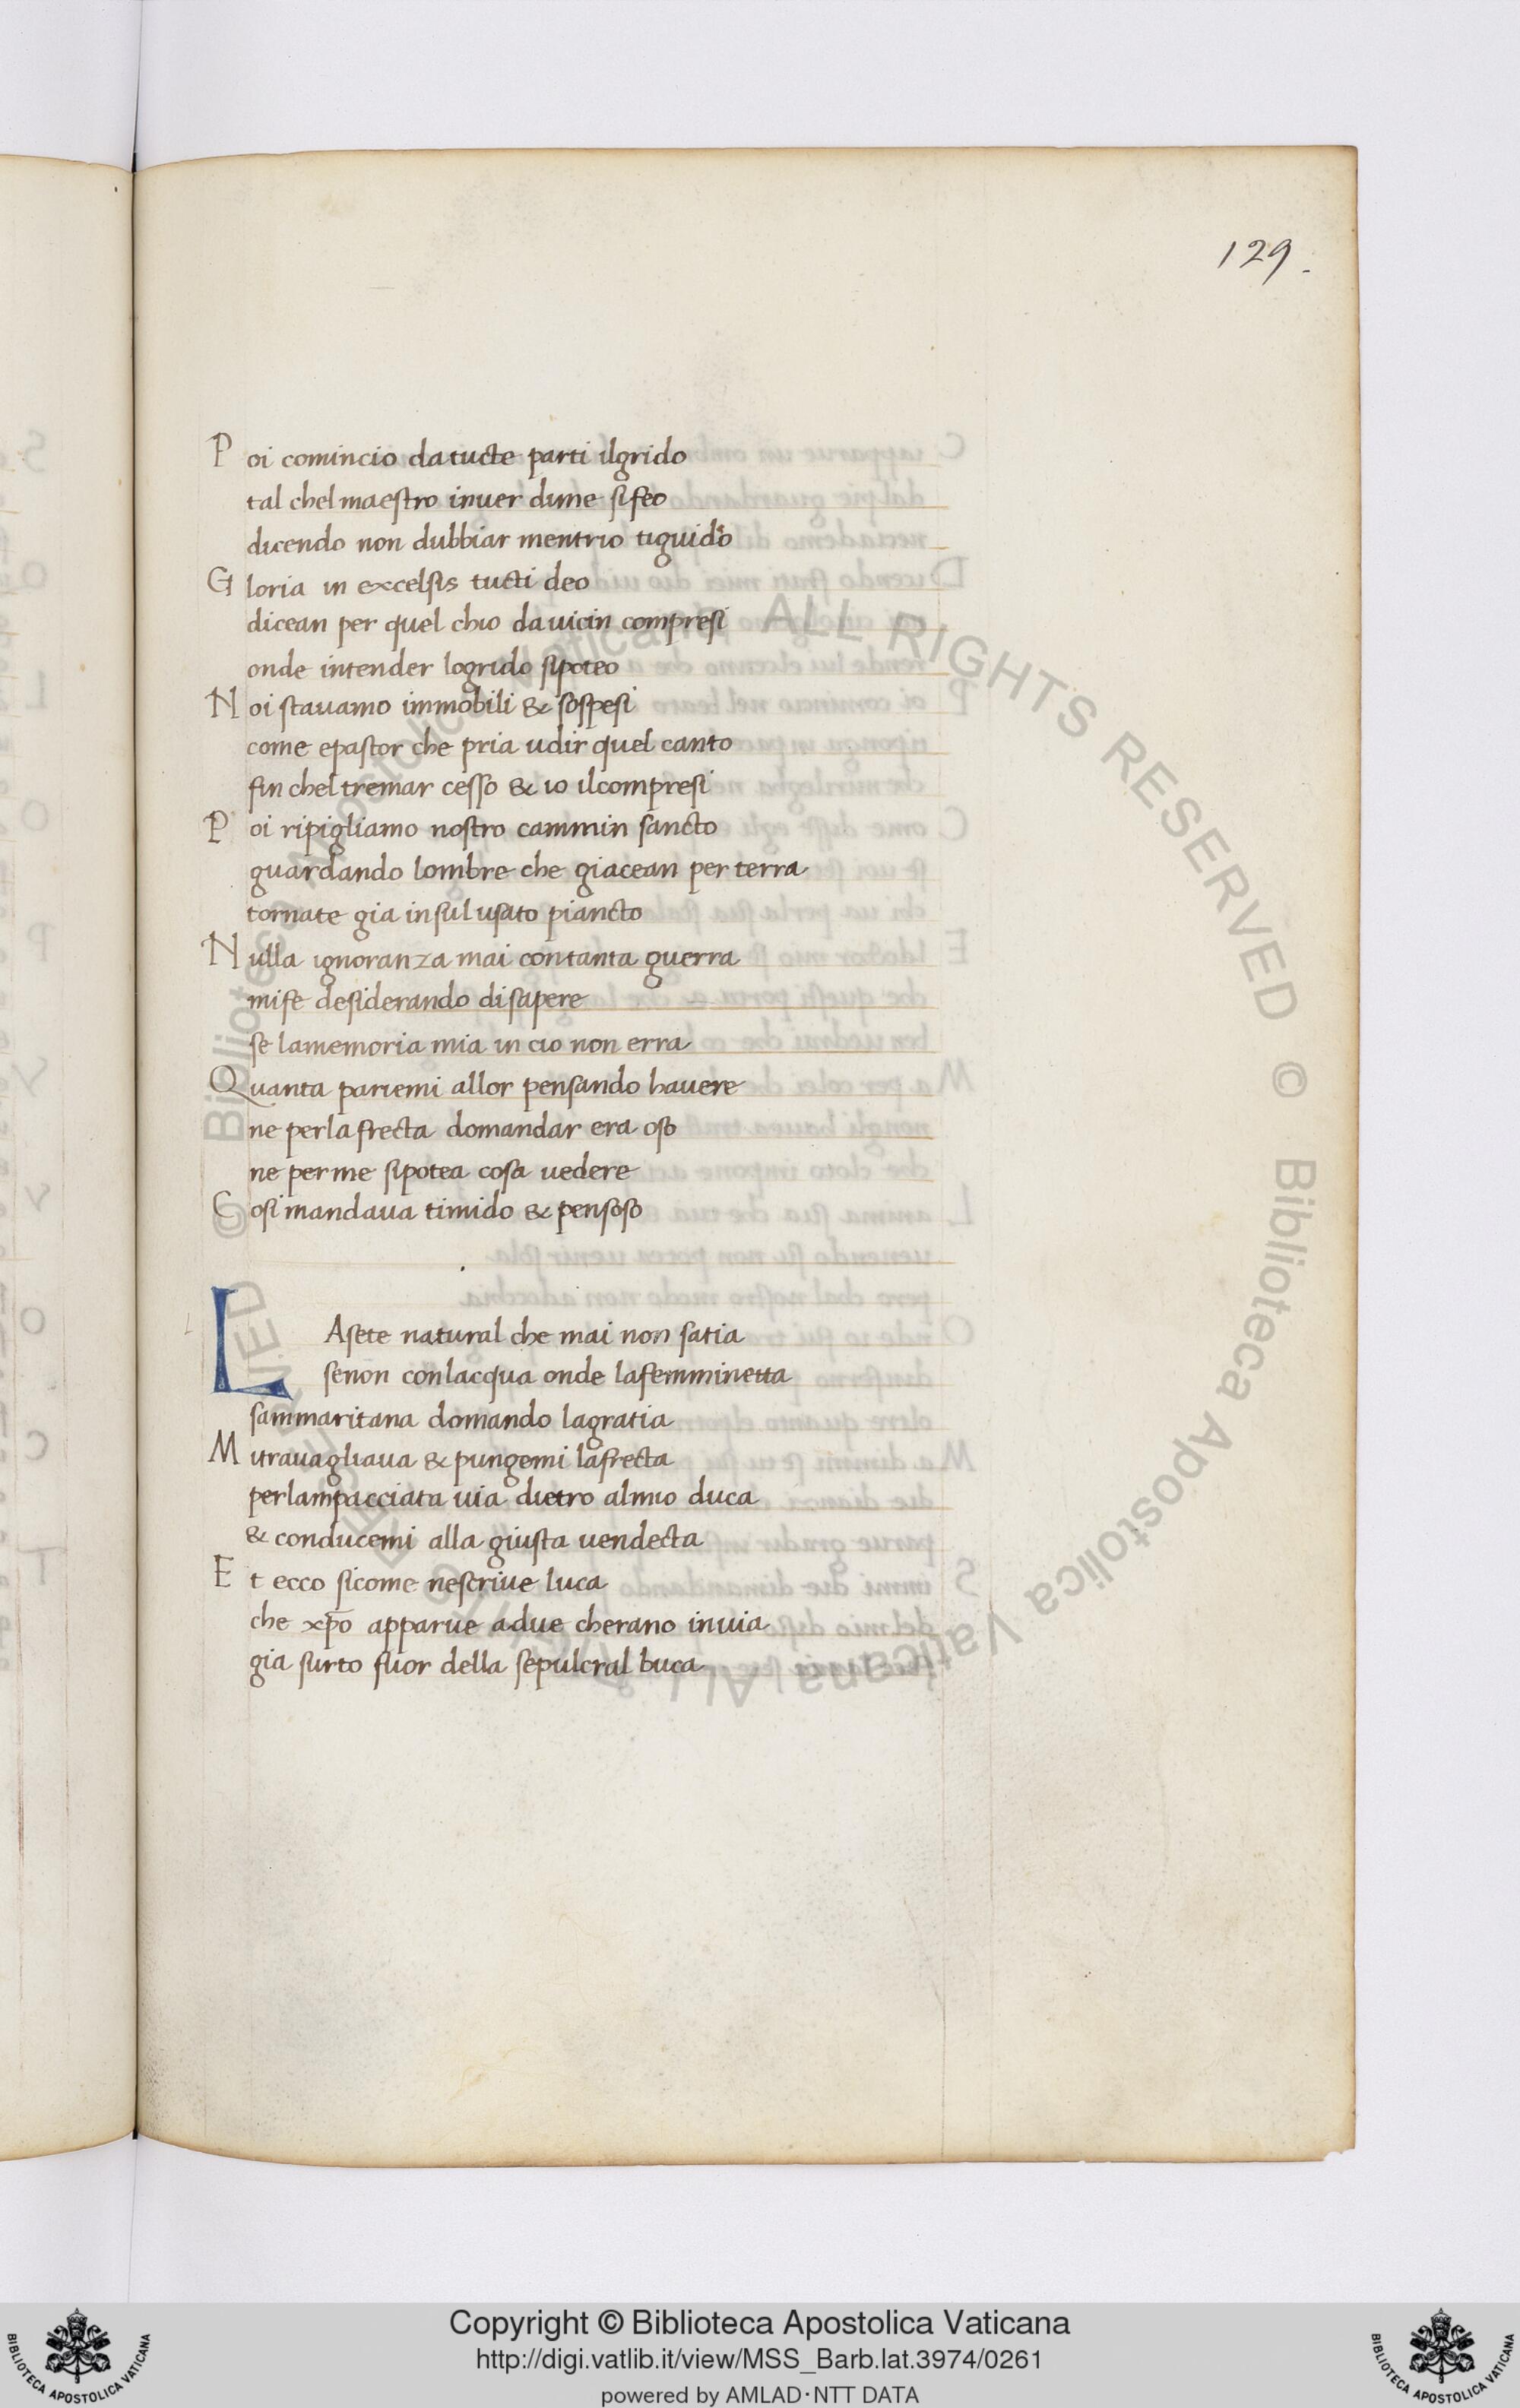 129.
Poi comincio da tucte parti ilgrido
tal chel maestro inuer dime sifeo
dicendo non dubbiar mentrio tiguido
Gloria in excelsis tucti deo
dicean per quel chio dauicin compresi
onde intender logrido sipoteo
Noi stauamo immobili & sospesi
come epastor che pria udir quel canto
fin chel tremar cesso & io ilcompresi
Poi ripigliamo nostro cammin sancto
guardando lombre che giacean per terra
tornate gia insul usato piancto
Nulla ignoranza mai contanta guerra
mife desiderando disapere
se lamemoria mia in cio non erra
Quanta pariemi allor pensando hauere
ne perla frecta domandar era oso
ne perme sipotea cosa vedere
Cosi mandaua timido & pensoso
LAsete natural che mai non satia
senon conlacqua onde lafemminetta
sammaritana domando lagratia
Mitrauagliaua & pungemi lafrecta
perlampacciata uia dietro almio duca
& conducemi alla giusta uendecta
Et ecco sicome nescriue luca
che xpo apparue adue cherano inuia
gia surto fuor della sepulcral buca
© Biblioteca Apostolica Vaticana ALL RIGHTS RESERVED © Biblioteca Apostolica Vaticana ALL RIGHTS RESERVED
Copyright © Biblioteca Apostolica Vaticana
http://digi.vatlib.it/view/MSS_Barb.lat.3974/0261
powered by AMLAD·NTT DATA
BIBLIOTECA APOSTOLICA VATICANA
BIBLIOTECA APOSTOLICA VATICANA